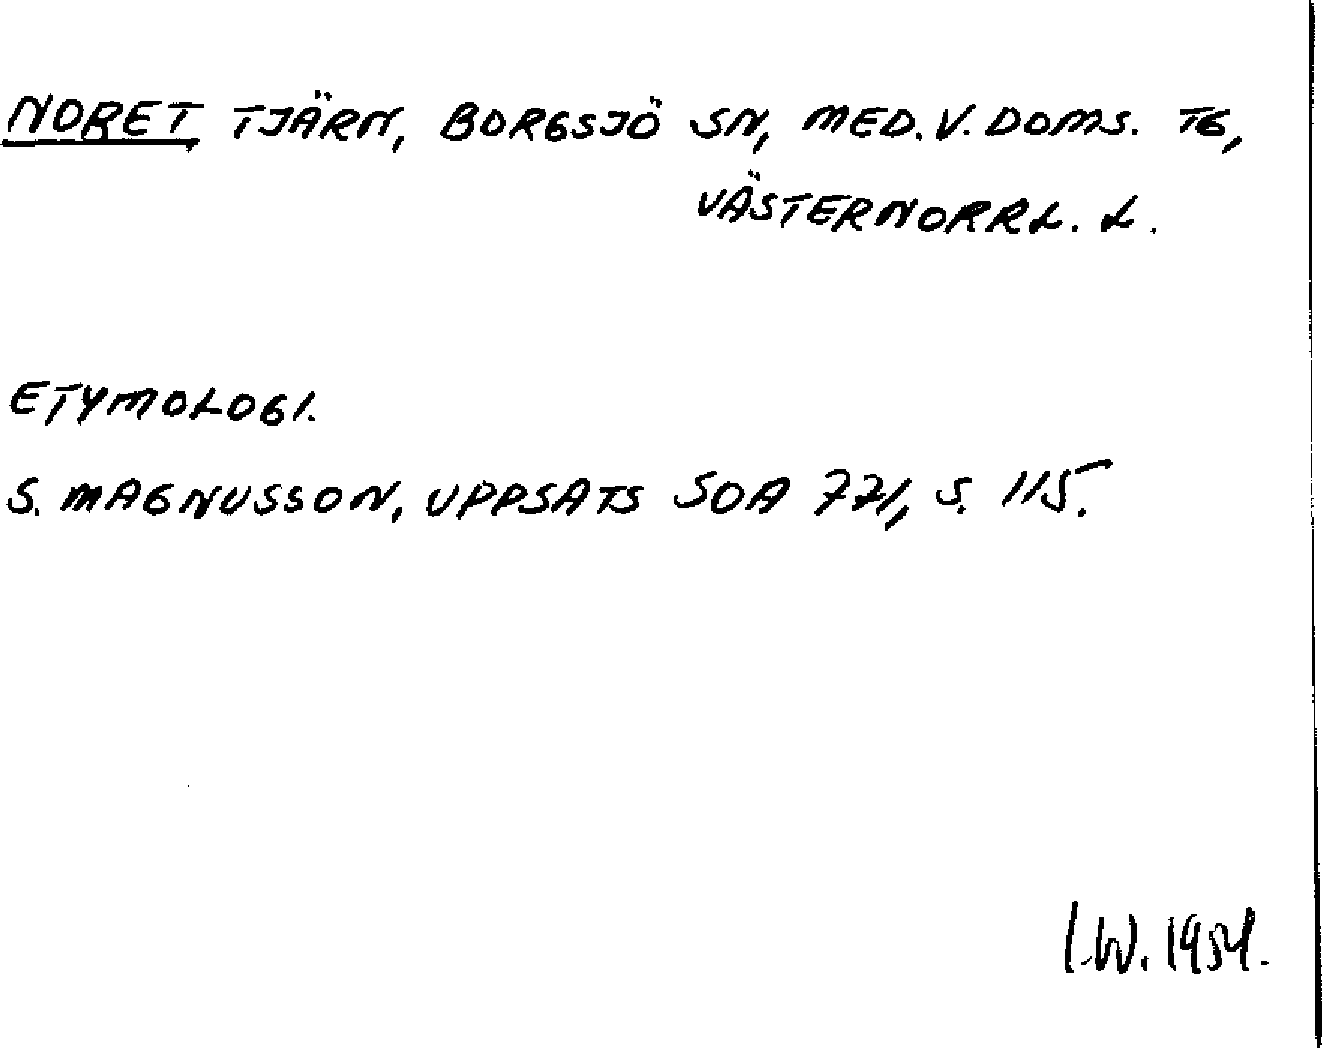 NORET, TJÄRN, BORGSJÖ SN, MED. V. DOMS. TG,
VÄSTERNORRL. L.
ETYMOLOGI.
S. MAGNUSSON, UPPSATS SOA 771, S. 115.
I.W. 1954.